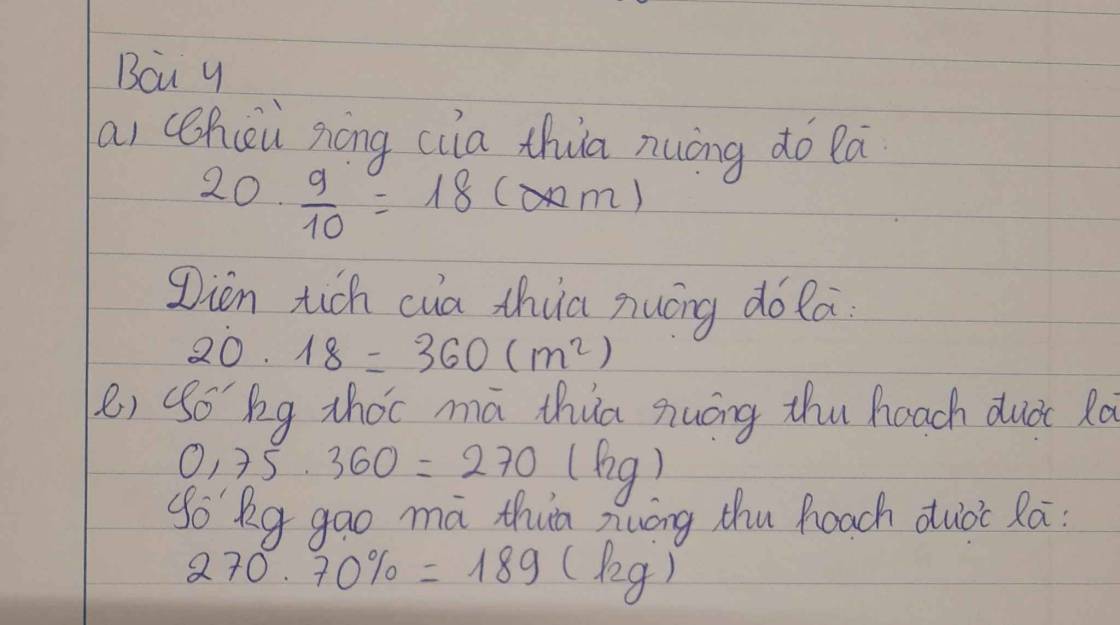 Bài 4
a) Chiều rộng của thửa ruộng đó là:
20 . 9/10 = 18 (m)
Diện tích của thửa ruộng đó là:
20 . 18 = 360 (m²)
b) Số kg thóc mà thửa ruộng thu hoạch được là
0,75 . 360 = 270 (kg)
Số kg gạo mà thửa ruộng thu hoạch được là:
270 . 70% = 189 (kg)